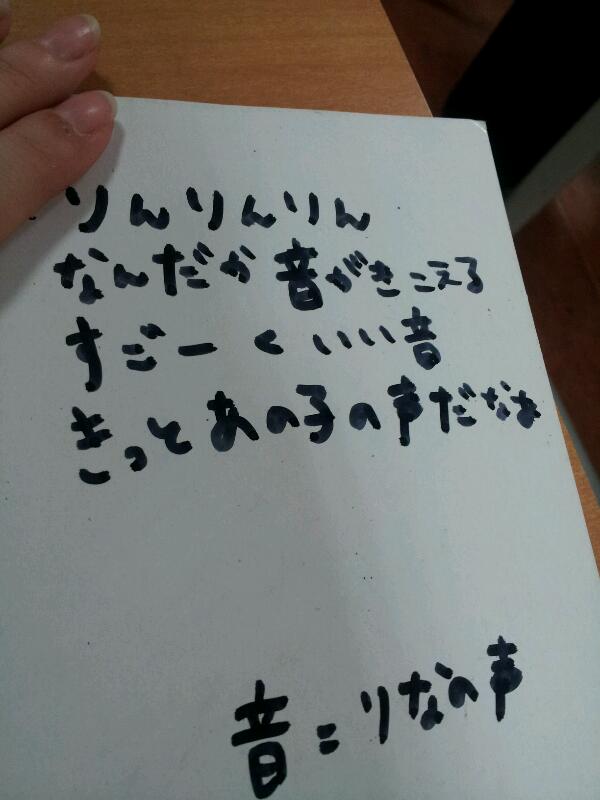 りんりんりん
なんだか音がきこえる
すごーくいい音
きっとあの子の声だなぁ
音=りなの声